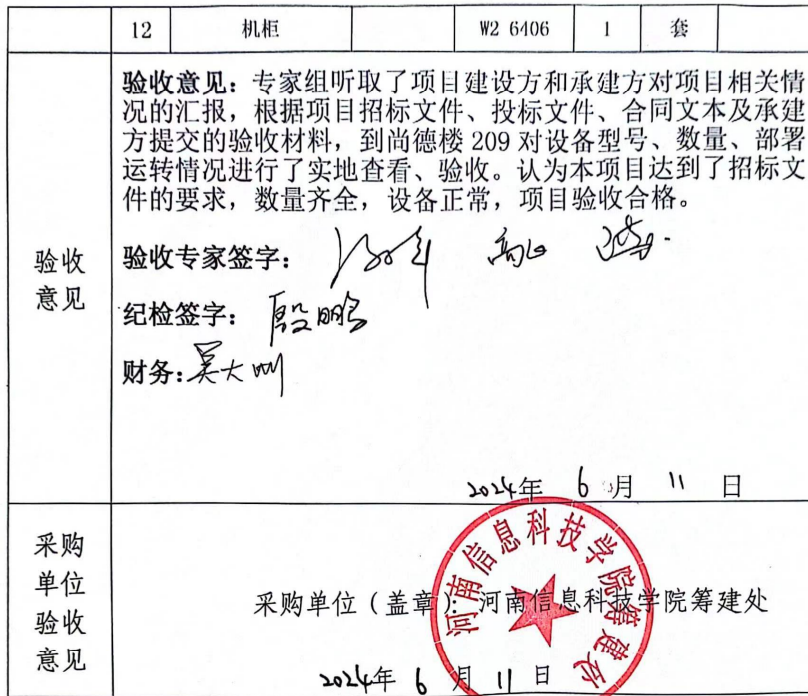 12 机柜 W2 6406 1 套
验收意见：专家组听取了项目建设方和承建方对项目相关情
况的汇报，根据项目招标文件、投标文件、合同文本及承建
方提交的验收材料，到尚德楼 209 对设备型号、数量、部署
运转情况进行了实地查看、验收。认为本项目达到了招标文
件的要求，数量齐全，设备正常，项目验收合格。
验收
意见
验收专家签字：
纪检签字：殷鹏
财务：
2024年 6 月 11 日
采购
单位
验收
意见
采购单位（盖章）：河南信息科技学院筹建处
河南信息科技学院筹建处
2024年 6 月 11 日